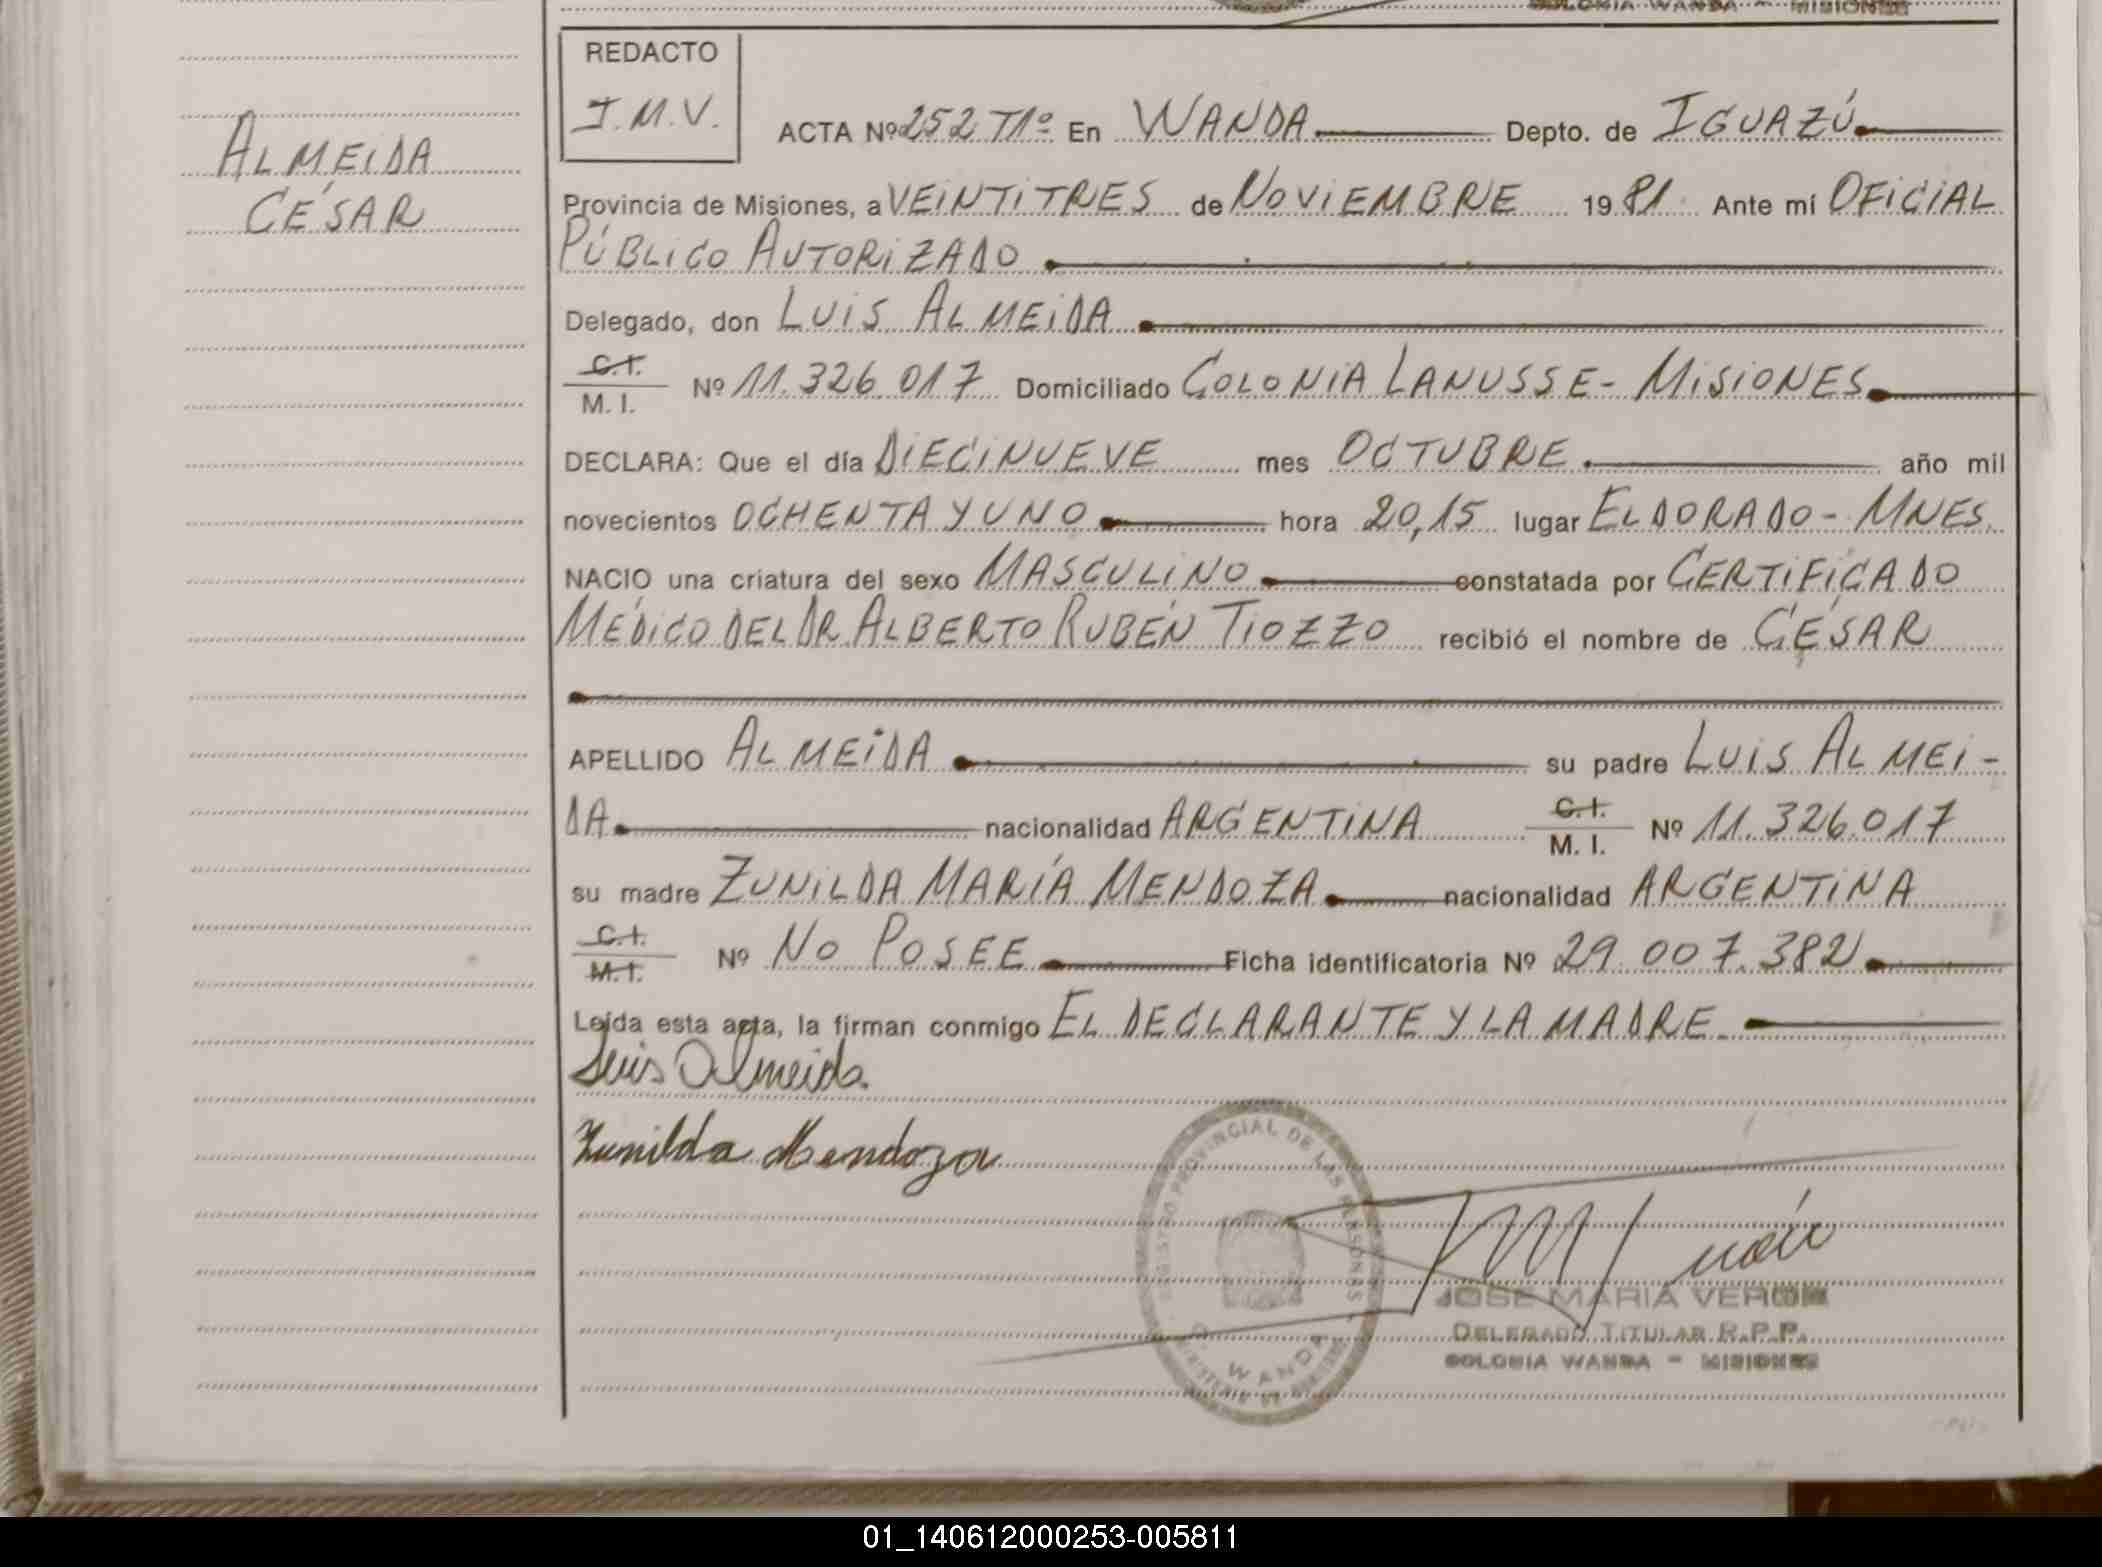 COLONIA WANDA - MISIONES
REDACTO
J.M.V.
ALMEIDA
CÉSAR
ACTA Nº 252 T1º En WANDA Depto. de IGUAZÚ
Provincia de Misiones, a VEINTITRES de NOVIEMBRE 1981 Ante mí OFICIAL
PÚBLICO AUTORIZADO
Delegado, don LUIS ALMEIDA
C.I.
M. I. Nº 11.326.017 Domiciliado COLONIA LANUSSE - MISIONES
DECLARA: Que el día DIECINUEVE mes OCTUBRE año mil
novecientos OCHENTA Y UNO hora 20,15 lugar ELDORADO - MNES.
NACIO una criatura del sexo MASCULINO constatada por CERTIFICADO
MÉDICO DEL DR. ALBERTO RUBÉN TIOZZO recibió el nombre de CÉSAR
APELLIDO ALMEIDA su padre LUIS ALMEI-
DA nacionalidad ARGENTINA C.I.
M. I. Nº 11.326.017
su madre ZUNILDA MARÍA MENDOZA nacionalidad ARGENTINA
C.I.
M.I. Nº NO POSEE Ficha identificatoria Nº 29.007.382
Leída esta acta, la firman conmigo EL DECLARANTE Y LA MADRE
Luis Almeida
Zunilda Mendoza
REGISTRO PROVINCIAL DE LAS PERSONAS
WANDA
JOSE MARIA VERON
DELEGADO TITULAR R.P.P.
COLONIA WANDA - MISIONES
01_140612000253-005811